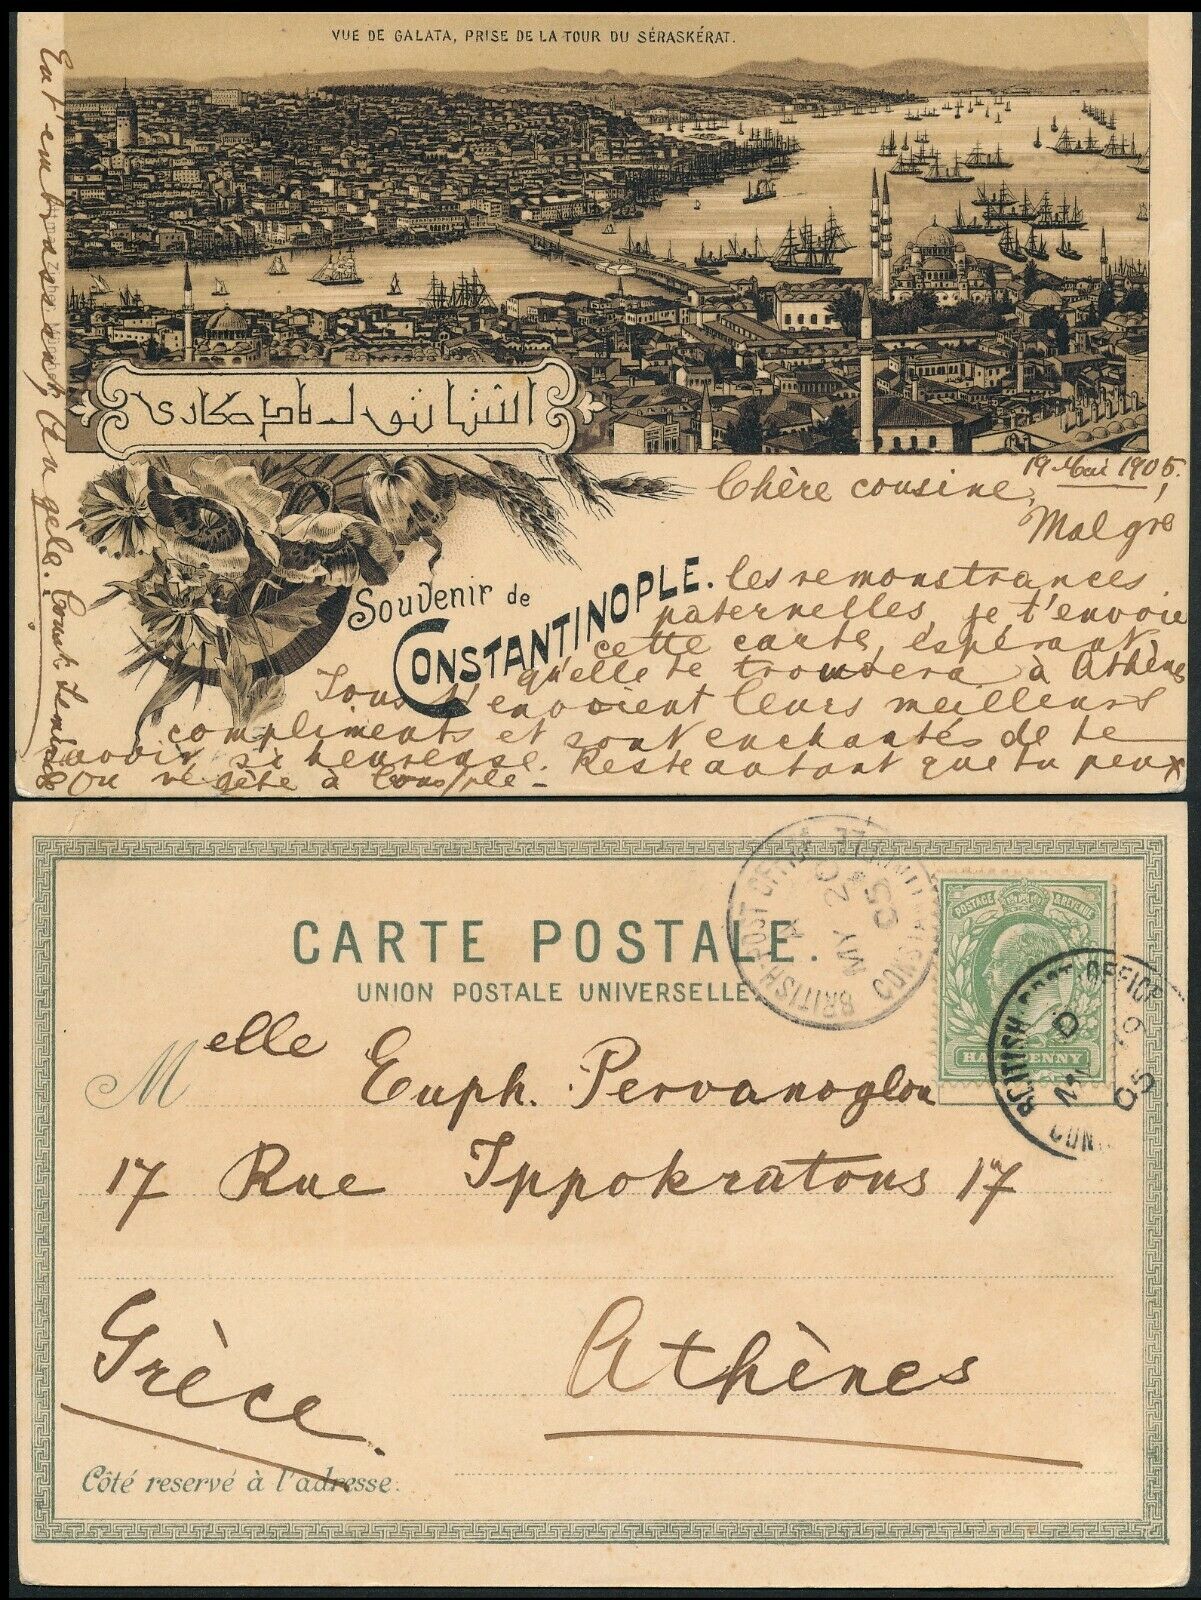 VUE DE GALATA, PRISE DE LA TOUR DU SÉRASKÉRAT.
Souvenir de
CONSTANTINOPLE.
19 Mai 1905.
Chère cousine,
Malgré
les remonstrances
paternelles, je t'envoie
cette carte, espérant
qu'elle te trouvera à Athènes
Tous t'envoient leurs meilleurs
compliments et sont enchantés de te
savoir si heureuse. Reste autant que tu peux
On végète à Cons/ple -
En t'embrassant Angèle.
CARTE POSTALE.
UNION POSTALE UNIVERSELLE.
Melle Euph. Pervanoglou
17 Rue Ippokratous 17
Grèce Athènes
Côté reservé à l'adresse.
POSTAGE & REVENUE
HALFPENNY
BRITISH POST OFFICE
CONSTANTINOPLE
MY 20
05
BRITISH POST OFFICE
D
05